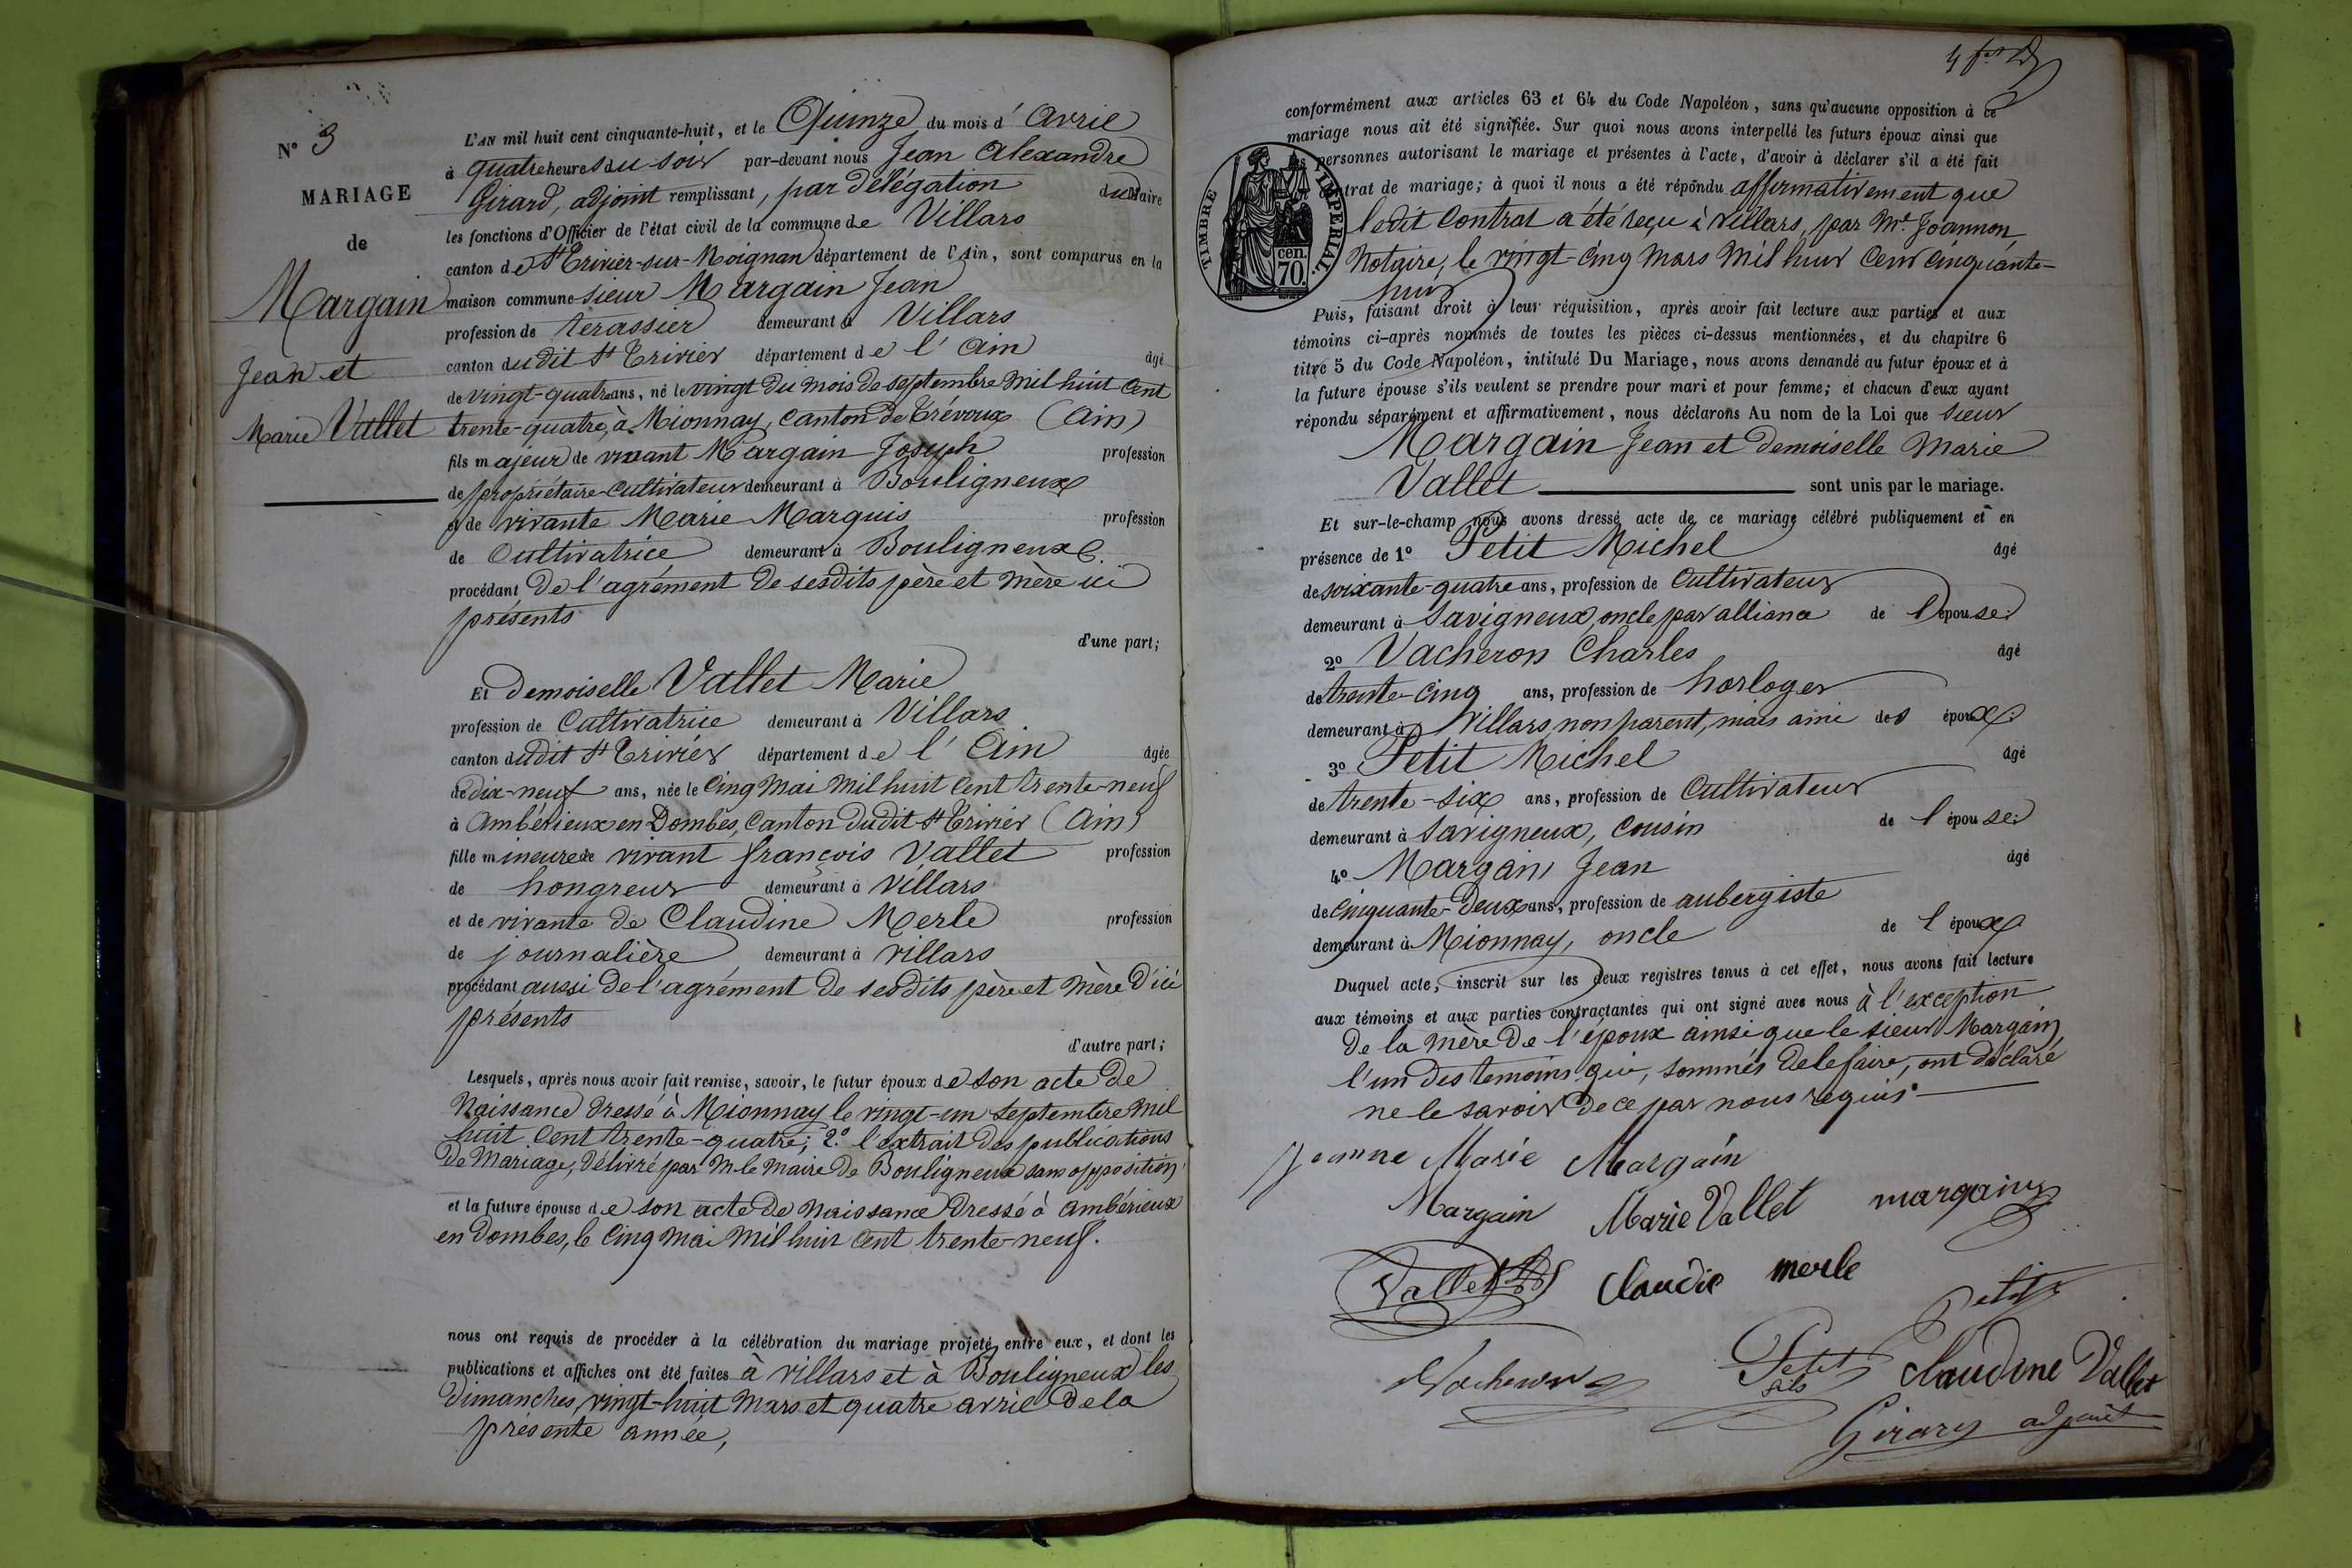 N° 3
MARIAGE
de
Margain
Jean et
Marie Vallet
L'AN mil huit cent cinquante-huit, et le Quinze du mois d'Avril
à quatre heures du soir par-devant nous Jean Alexandre
Girard, adjoint remplissant, par délégation du Maire
les fonctions d'Officier de l'état civil de la commune de Villars
canton de St Trivier-sur-Moignan département de l'Ain, sont comparus en la
maison commune sieur Margain Jean
profession de terassier demeurant à Villars
canton dudit St Trivier département de l'Ain âgé
de vingt-quatre ans, né le vingt du mois de septembre mil huit cent
trente-quatre, à Mionnay, canton de Trévoux (Ain)
fils majeur de vivant Margain Joseph profession
de propriétaire-cultivateur demeurant à Bouligneux
et de vivante Marie Marquis profession
de Cultivatrice demeurant à Bouligneux
procédant de l'agrément de sesdits père et mère ici
présents
d'une part;
Et demoiselle Vallet Marie
profession de Cultivatrice demeurant à Villars
canton dudit St Trivier département de l'Ain âgée
de dix-neuf ans, née le cinq mai mil huit cent trente-neuf
à Ambérieux en Dombes, canton dudit St Trivier (Ain)
fille mineure de vivant françois Vallet profession
de hongreur demeurant à Villars
et de vivante de Claudine Merle profession
de journalière demeurant à villars
procédant aussi de l'agrément de sesdits père et mère d'ici
présents
d'autre part;
Lesquels, après nous avoir fait remise, savoir, le futur époux de son acte de
Naissance dressé à Mionnay le vingt-un septembre mil
huit cent trente-quatre; 2° l'extrait des publications
de Mariage, délivré par M. le Maire de Bouligneux sans opposition
et la future épouse de son acte de Naissance dressé à ambérieux
en Dombes, le cinq mai mil huit cent trente-neuf.
nous ont requis de procéder à la célébration du mariage projeté entre eux, et dont les
publications et affiches ont été faites à Villars et à Bouligneux les
dimanches, vingt-huit Mars et quatre avril de la
présente année,
conformément aux articles 63 et 64 du Code Napoléon, sans qu'aucune opposition à ce
mariage nous ait été signifiée. Sur quoi nous avons interpellé les futurs époux ainsi que
personnes autorisant le mariage et présentes à l'acte, d'avoir à déclarer s'il a été fait
trat de mariage; à quoi il nous a été répondu affirmativement que
ledit contrat a été reçu à Villars, par Me Joannon
Notaire, le vingt-cinq mars mil huit cent cinquante-
huit
TIMBRE IMPERIAL.
cen.
70.
Puis, faisant droit à leur réquisition, après avoir fait lecture aux parties et aux
témoins ci-après nommés de toutes les pièces ci-dessus mentionnées, et du chapitre 6
titre 5 du Code Napoléon, intitulé Du Mariage, nous avons demandé au futur époux et à
la future épouse s'ils veulent se prendre pour mari et pour femme; et chacun d'eux ayant
répondu séparément et affirmativement, nous déclarons Au nom de la Loi que sieur
Margain Jean et demoiselle Marie
Vallet sont unis par le mariage.
Et sur-le-champ nous avons dressé acte de ce mariage célébré publiquement et en
présence de 1° Petit Michel âgé
de soixante-quatre ans, profession de Cultivateur
demeurant à Savigneux, oncle par alliance de l'épouse;
2° Vacheron Charles âgé
de trente-cinq ans, profession de horloger
demeurant à Villars, non parent, mais ami des époux;
3° Petit Michel âgé
de trente-six ans, profession de Cultivateur
demeurant à Savigneux, cousin de l'épouse;
4° Margain Jean âgé
de cinquante-deux ans, profession de aubergiste
demeurant à Mionnay, oncle de l'époux
Duquel acte, inscrit sur les deux registres tenus à cet effet, nous avons fait lecture
aux témoins et aux parties contractantes qui ont signé avec nous à l'exception
de la mère de l'époux ainsi que le sieur Margain
l'un des temoins qui, sommés de le faire, ont déclaré
ne le savoir de ce par nous requis.
Jeanne Marie Margain
Margain Marie Vallet margain
Vallet Claudie merle
Petit
Vacheron Petit fils Claudine Vallet
Girard adjoint